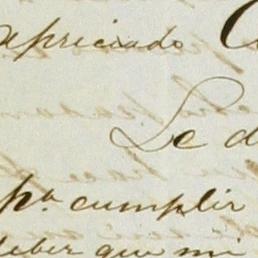 apriciado
Le d
pª cumplir
deber que mi